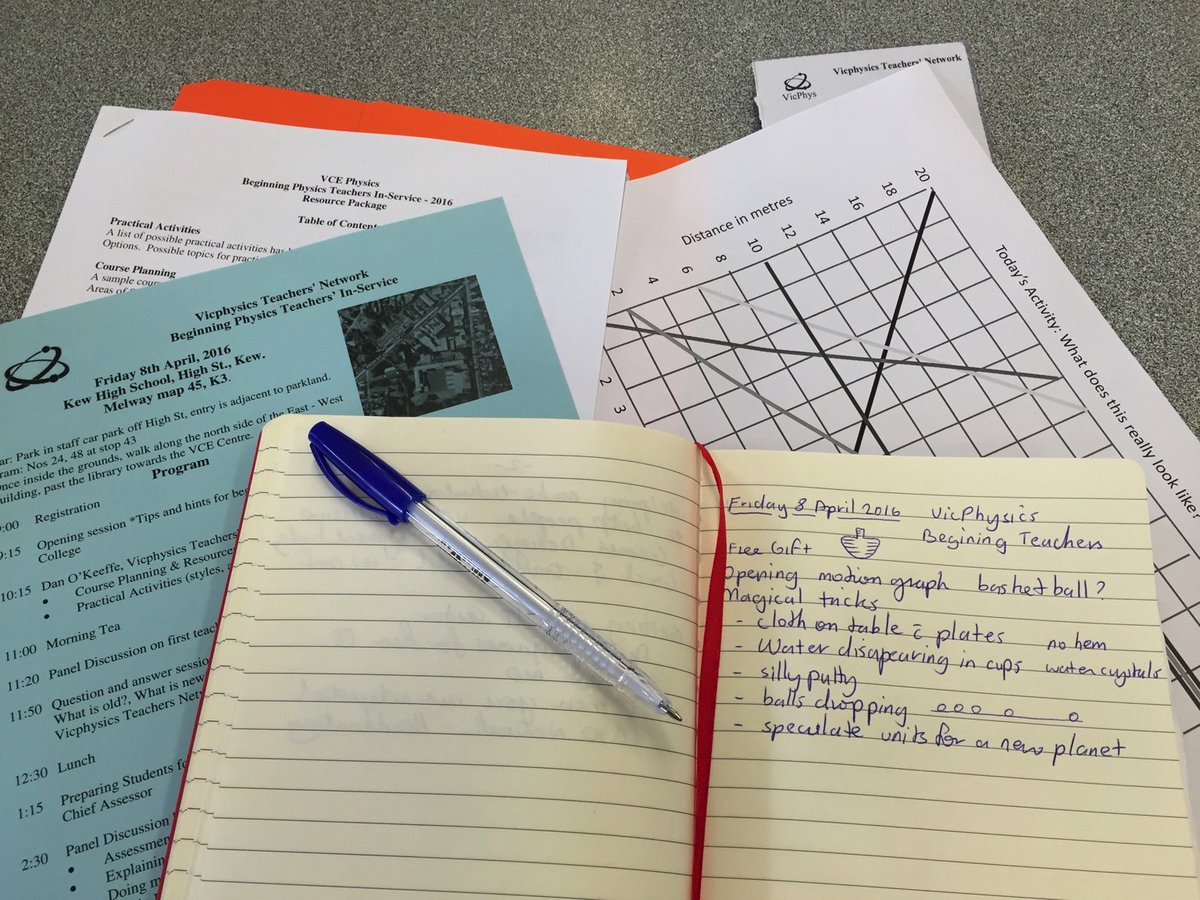 Vicphysics Teachers' Network
VicPhys
VCE Physics
Beginning Physics Teachers In-Service - 2016
Resource Package
Table of Content
Practical Activities
A list of possible practical activities has
Options. Possible topics for
Course Planning
A sample
Areas of
Vicphysics Teachers' Network
Beginning Physics Teachers' In-Service
Friday 8th April, 2016
Kew High School, High St., Kew.
Melway map 45, K3.
ar: Park in staff car park off High St, entry is adjacent to parkland.
ram: Nos 24, 48 at stop 43
nce inside the grounds, walk along the north side of the East - West
uilding, past the library towards the VCE Centre.
Program
:00 Registration
9:15 Opening session *Tips and hints for
College
10:15 Dan O'Keeffe, Vicphysics Teachers
• Course Planning & Resource
• Practical Activities (styles, a
11:00 Morning Tea
11:20 Panel Discussion on first teac
11:50 Question and answer sessio
What is old?, What is new
Vicphysics Teachers Net
12:30 Lunch
1:15 Preparing Students for
Chief Assessor
2:30 Panel Discussion
• Assessmen
• Explaining
• Doing m
Distance in metres
2 4 6 8 10 12 14 16 18 20
2
3
Today's Activity: What does this really look like?
Friday 8 April 2016 VicPhysics
Begining Teachers
Free Gift
Opening motion graph basketball?
Magical tricks
- cloth on table c̄ plates no hem
- Water disapearing in cups water crystals
- silly putty
- balls dropping
- speculate units for a new planet